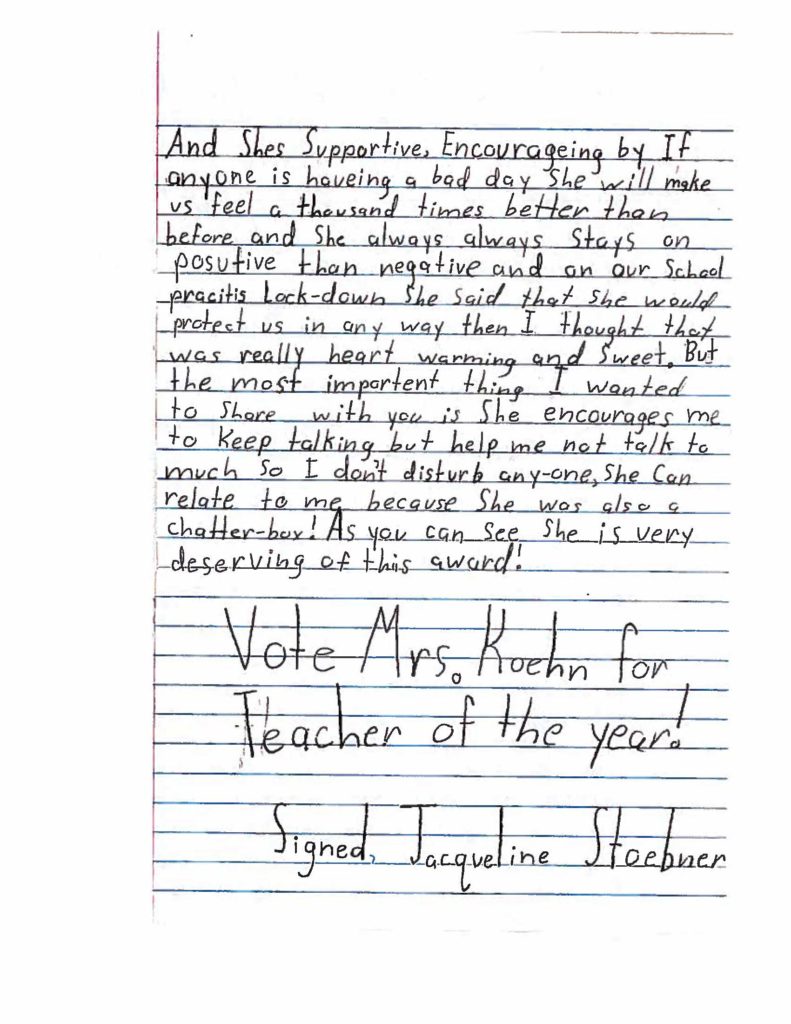 And Shes Supportive, Encourageing by If
anyone is haveing a bad day She will make
us feel a thousand times better than
before and She always always Stays on
posutive than negative and on our School
pracitis Lock-down She Said that She would
protect us in any way then I thought that
was really heart warming and Sweet. But
the most importent thing I wanted
to Share with you is She encourages me
to Keep talking but help me not talk to
much So I don't disturb any-one, She Can
relate to me because She was also a
chatter-box! As you can See She is very
deserving of this award!
Vote Mrs. Koehn for
Teacher of the year!
Signed, Jacqueline Stoebner